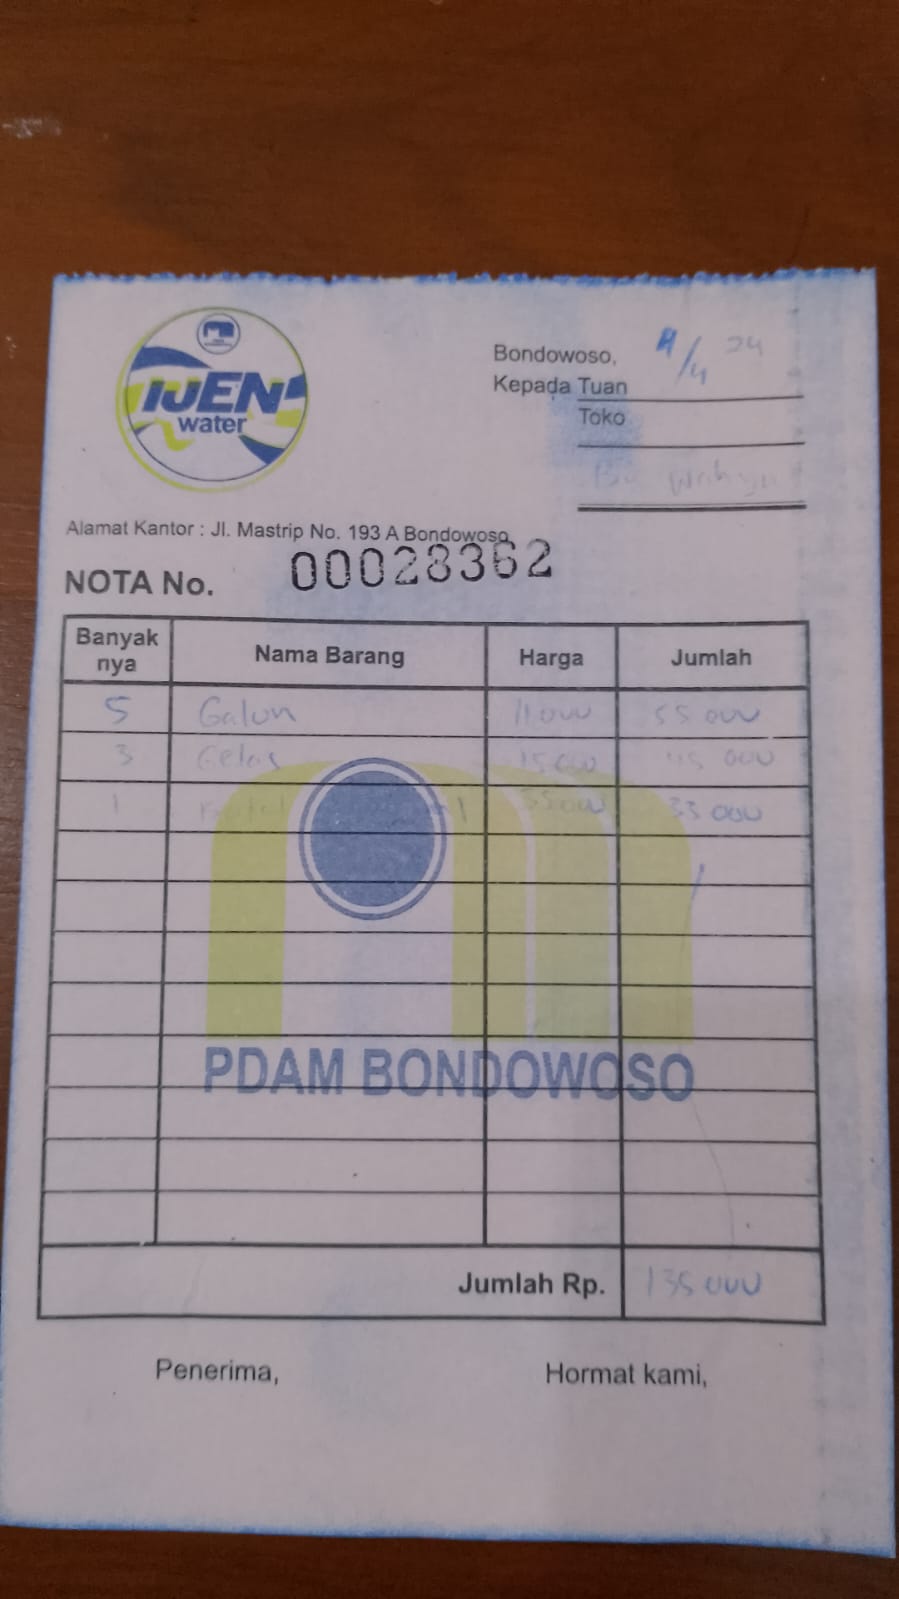 IJEN
water
Bondowoso, /4 24
Kepada Tuan
Toko
Bu Wahyu
Alamat Kantor : Jl. Mastrip No. 193 A Bondowoso
NOTA No. 00028362
Banyak nya Nama Barang Harga Jumlah
5 Galun 11.000 55 000
3 Gelas 15000 45 000
1 35000 35 000
PDAM BONDOWOSO
Jumlah Rp. 135 000
Penerima, Hormat kami,